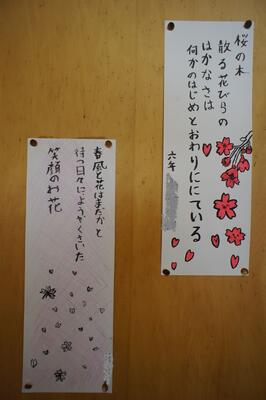 桜の木
散る花びらの
はかなさは
何かのはじめとおわりににている
六年
春風と花はまだかと
待つ日々にようやくさいた
笑顔のお花